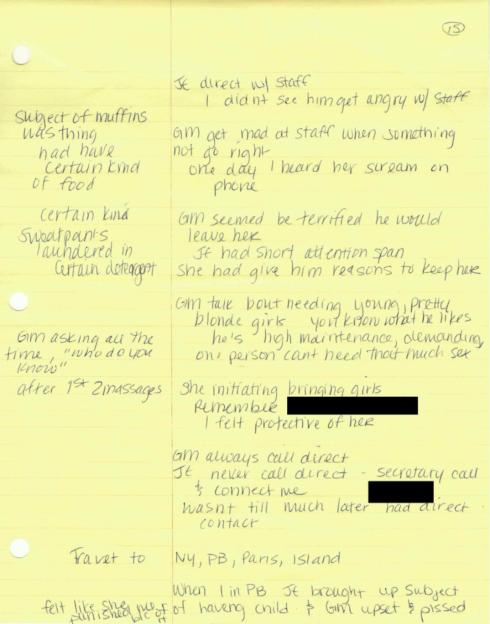 15
JE direct w/ staff
I didnt see him get angry w/ staff
subject of muffins
was thing
had have
certain kind
of food
GM get mad at staff when something
not go right
one day I heard her scream on
phone
certain kind
sweatpants
laundered in
certain detergent
GM seemed be terrified he would
leave her
JE had short attention span
She had give him reasons to keep her
GM talk bout needing young, pretty
blonde girls you know what he likes
he's high maintenance, demanding,
one person cant need that much sex
GM asking all the
time, "who do you
know"
after 1st 2 massages
She initiating bringing girls
Remember
I felt protective of her
GM always call direct
JE never call direct - secretary call
& connect me
wasnt till much later had direct
contact
Travel to
NY, PB, Paris, Island
When I in PB JE brought up subject
of having child & GM upset & pissed
felt like she
punished me
b/c of